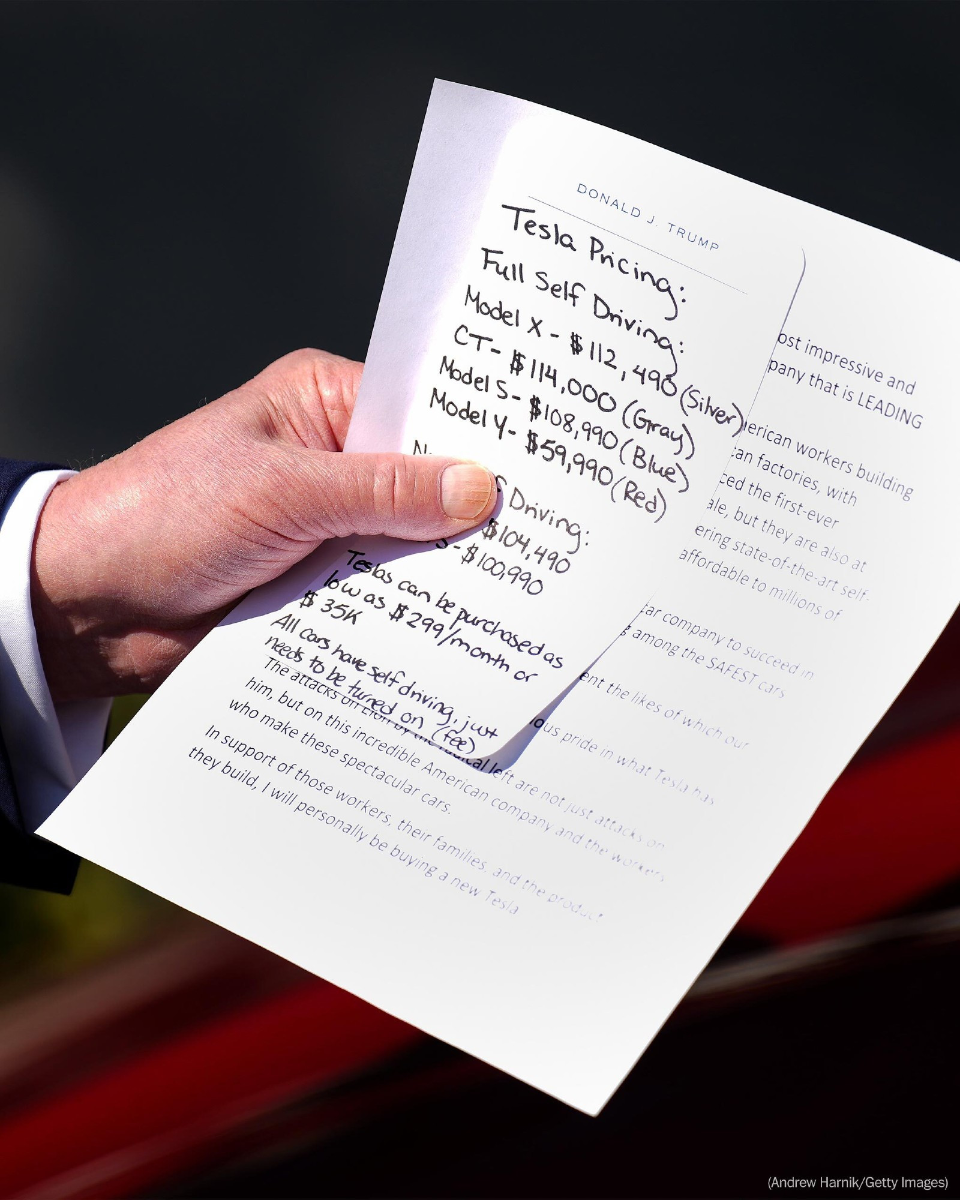 DONALD J. TRUMP
Tesla Pricing:
Full Self Driving:
Model X - $112,490 (Silver)
CT - $114,000 (Gray)
Model S - $108,990 (Blue)
Model Y - $59,990 (Red)
Driving:
$104,490
S - $100,990
Teslas can be purchased as
low as $299/month or
$35K
All cars have self driving, just
needs to be turned on (fee)
impressive and
that is LEADING
workers building
factories, with
the first-ever
but they are also at
state-of-the-art self-
affordable to millions of
company to succeed in
among the SAFEST cars
the likes of which our
pride in what Tesla has
The attacks on by the left are not just attacks on
him, but on this incredible American company and the workers
who make these spectacular cars.
In support of those workers, their families, and the product
they build, I will personally be buying a new Tesla
(Andrew Harnik/Getty Images)